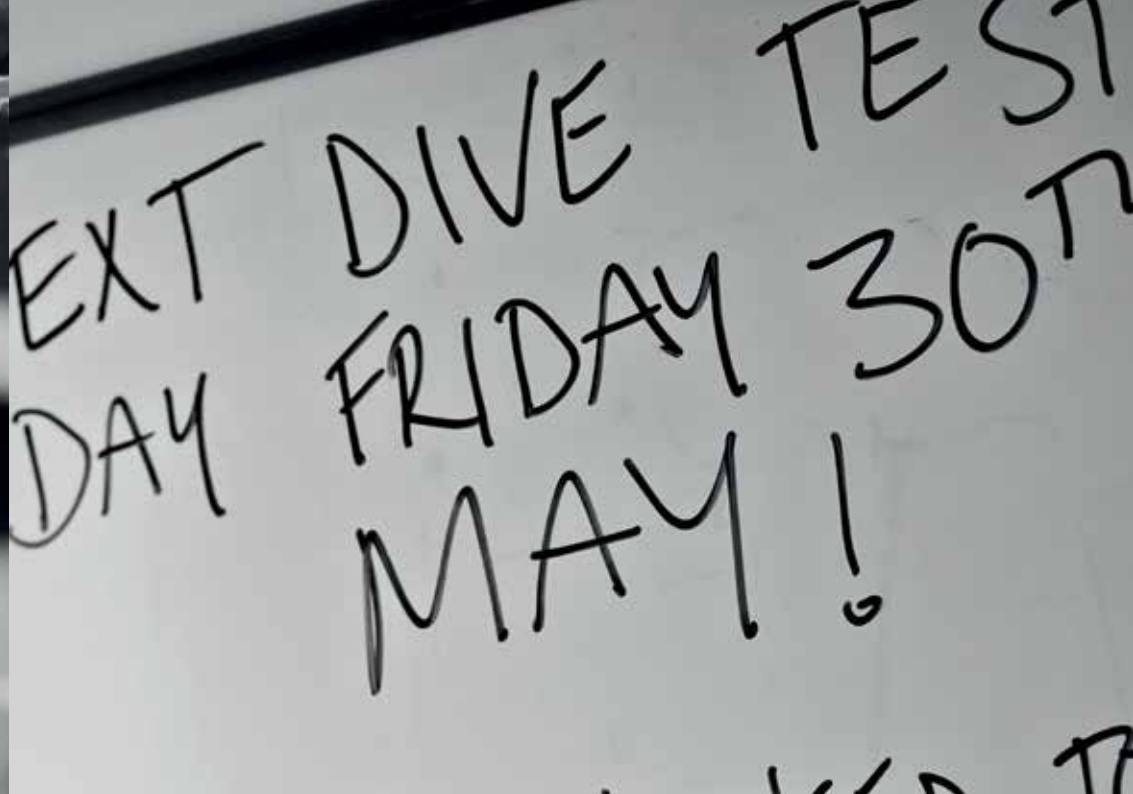 EXT DIVE TEST
DAY FRIDAY 30TH
MAY!